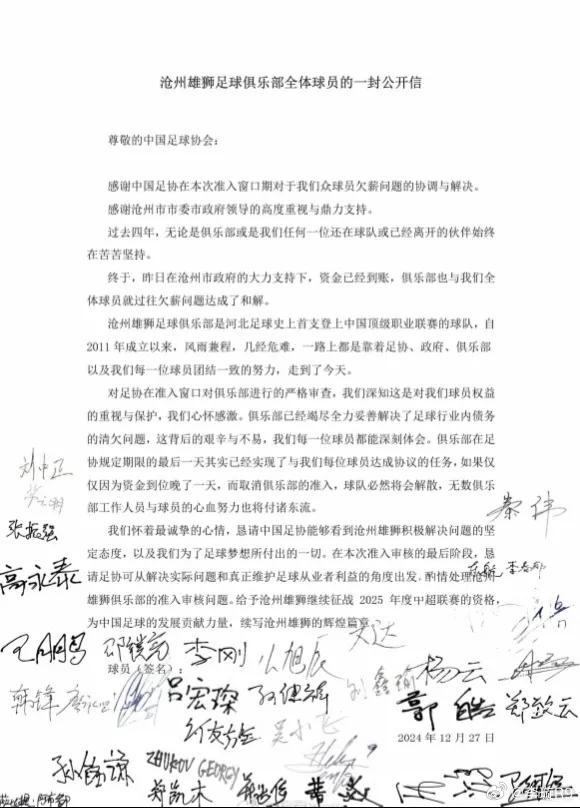 沧州雄狮足球俱乐部全体球员的一封公开信
尊敬的中国足球协会：
感谢中国足协在本次准入窗口期对于我们众球员欠薪问题的协调与解决。
感谢沧州市市委市政府领导的高度重视与鼎力支持。
过去四年，无论是俱乐部或是我们任何一位还在球队或已经离开的伙伴始终
在苦苦坚持。
终于，昨日在沧州市政府的大力支持下，资金已经到账，俱乐部也与我们全
体球员就过往欠薪问题达成了和解。
沧州雄狮足球俱乐部是河北足球史上首支登上中国顶级职业联赛的球队，自
2011年成立以来，风雨兼程，几经危难，一路上都是靠着足协、政府、俱乐部
以及我们每一位球员团结一致的努力，走到了今天。
对足协在准入窗口对俱乐部进行的严格审查，我们深知这是对我们球员权益
的重视与保护，我们心怀感激。俱乐部已经竭尽全力妥善解决了足球行业内债务
的清欠问题，这背后的艰辛与不易，我们每一位球员都能深刻体会。俱乐部在足
协规定期限的最后一天其实已经实现了与我们每位球员达成协议的任务，如果仅
仅因为资金到位晚了一天，而取消俱乐部的准入，球队必然将会解散，无数俱乐
部工作人员与球员的心血努力也将付诸东流。
我们怀着最诚挚的心情，恳请中国足协能够看到沧州雄狮积极解决问题的
坚定态度，以及我们为了足球梦想所付出的一切。在本次准入审核的最后阶段，恳
请足协可从解决实际问题和真正维护足球从业者利益的角度出发，酌情处理沧州
雄狮俱乐部的准入审核问题。给予沧州雄狮继续征战 2025 年度中超联赛的资格，
为中国足球的发展贡献力量，续写沧州雄狮的辉煌篇章。
球员（签名）：
刘中正
张振强
高永泰
秦伟
李春郁
王鹏
邵镤亮
李刚
文达
韩锋
吕宏琛
孙健祥
刘鑫瑜
杨云
郭皓
郑致云
吴小飞
孙锦谦
ZHUKOV GEORGY
郑凯木
2024 年 12 月 27 日